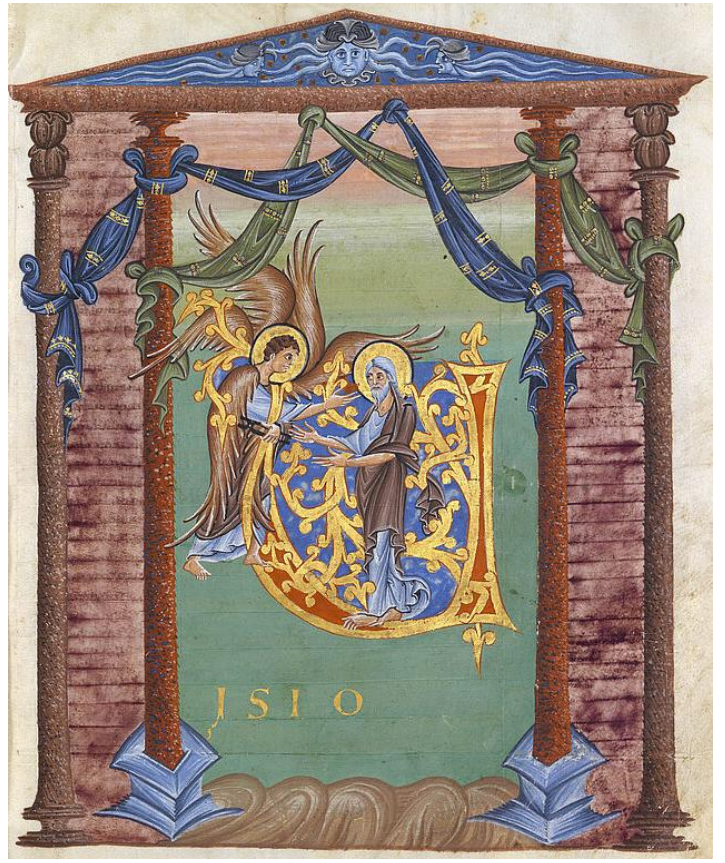 V
ISIO